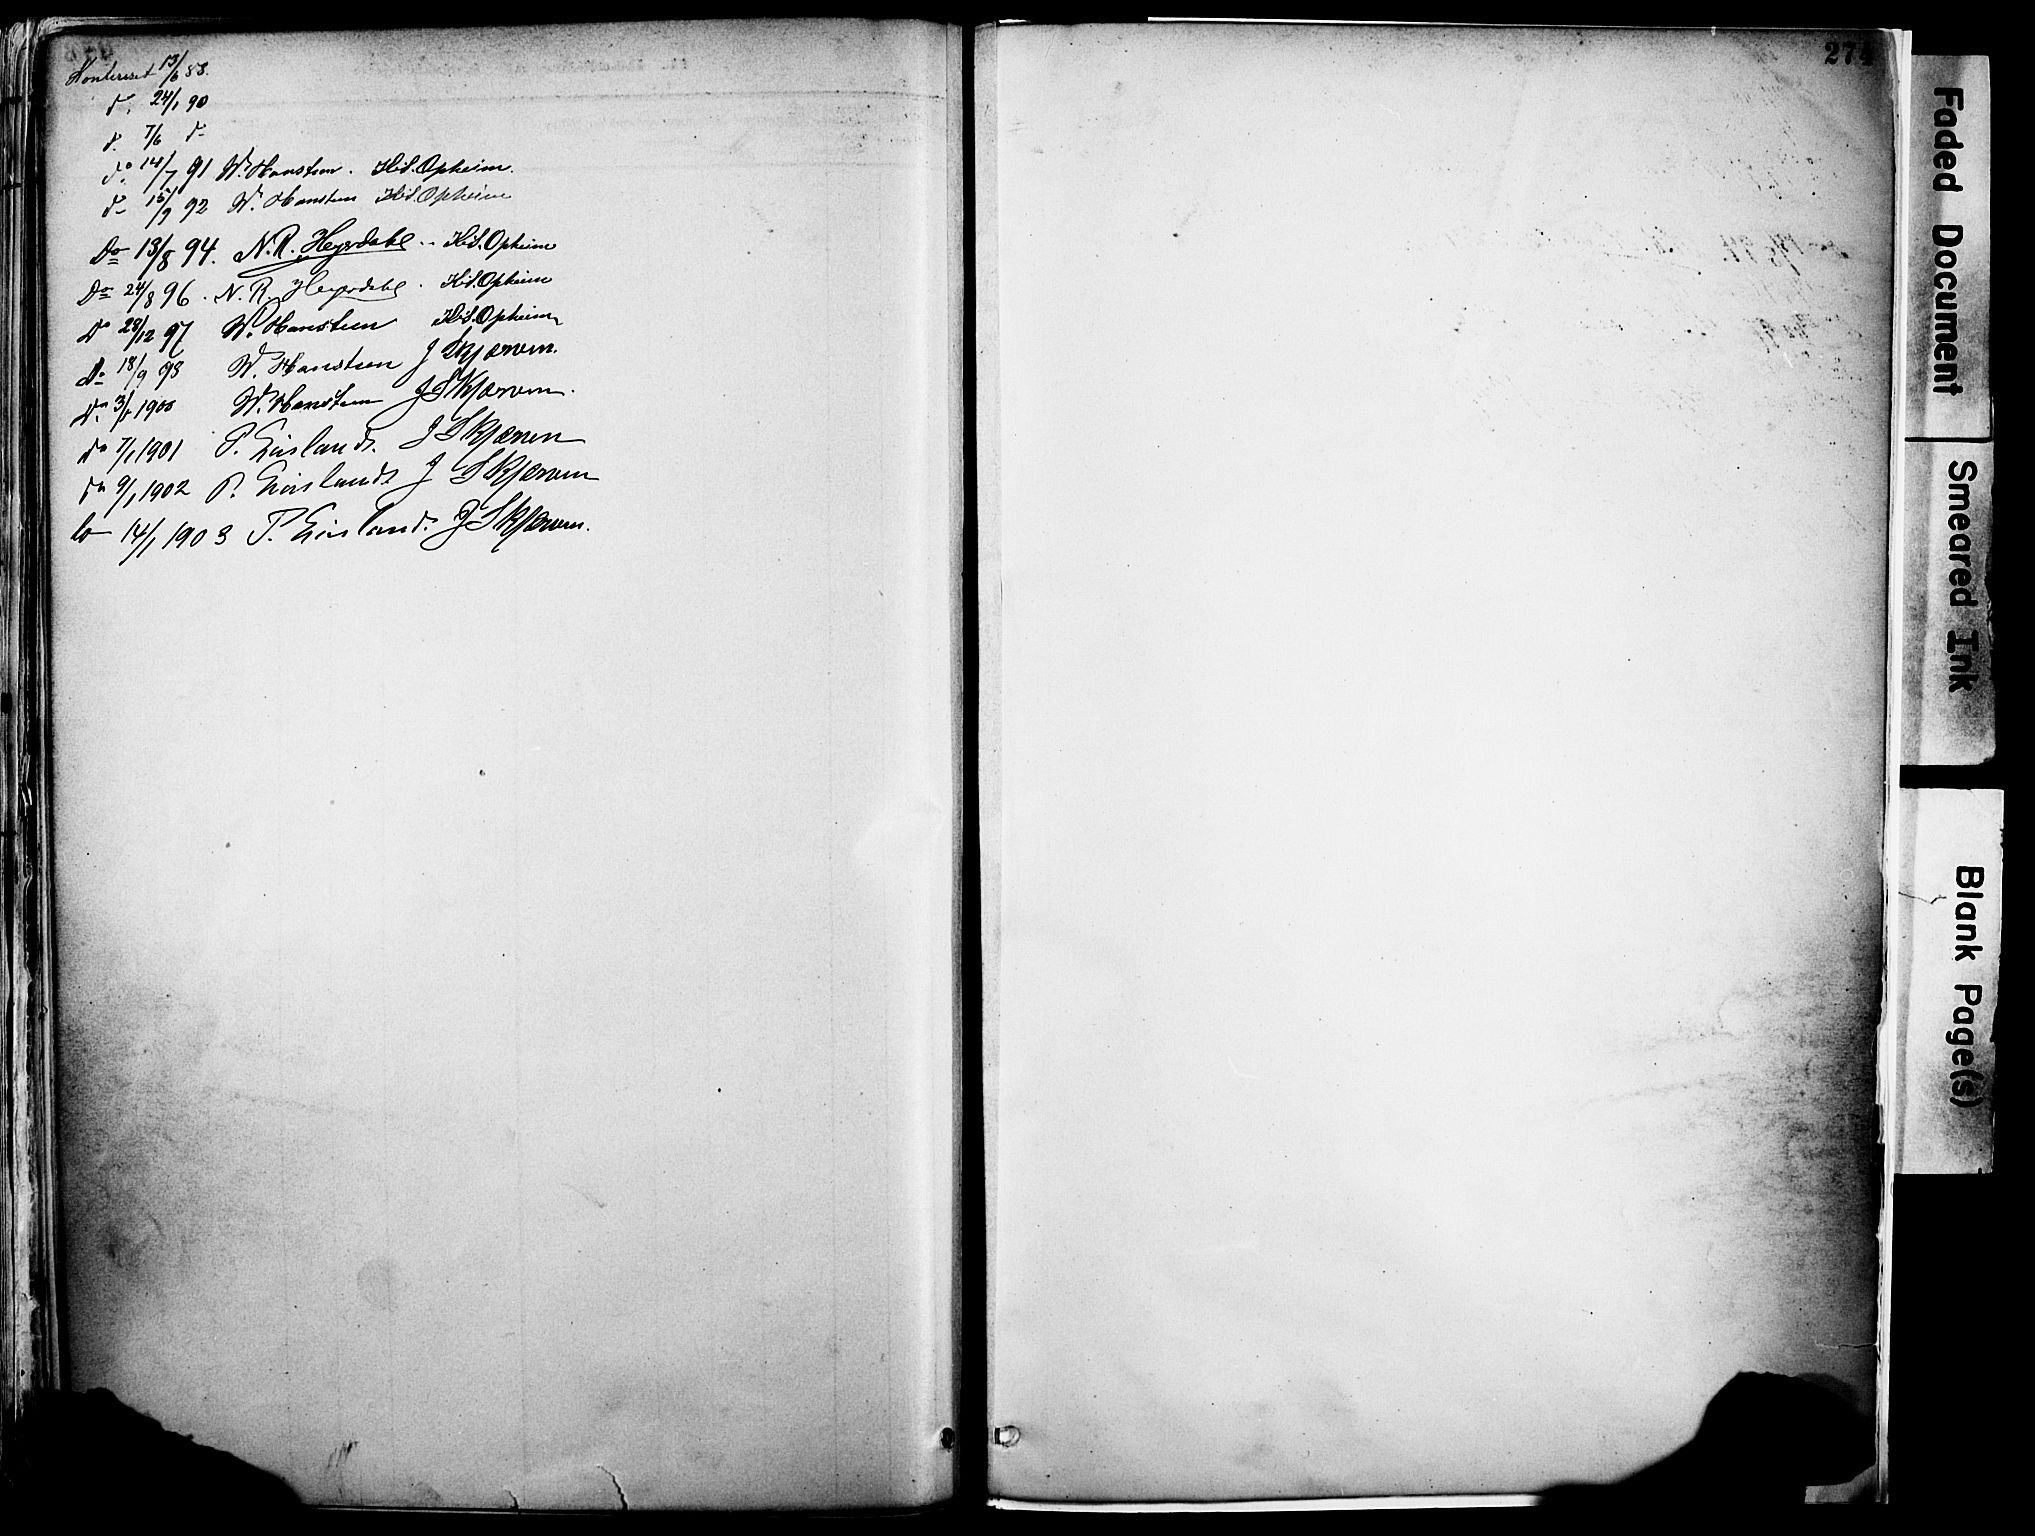 Konfereret 13/6 88.
do. 24/1 90
do. 7/6 do
do. 14/7 91 W. Hansteen. Hid. Opheim.
do 15/9 92 W. Hansteen Hid. Opheim
Do 13/8 94. N. R. Heyerdahl .. Hid. Opheim
Do 24/8 96. N. R. Heyerdahl. Hid. Opheim
Do 28/12 97 W. Hansteen Hid. Opheim
Do 18/9 98 W. Hansteen J Skjerven.
Do 3/1 1900 W. Hansteen J Skjerven.
do 7/1 1901 P. J Skjerven
do 9/1 1902 P. J Skjerven
do 14/1 1903 P. J Skjerven.
274
Faded Document
Smeared Ink
Blank Page(s)